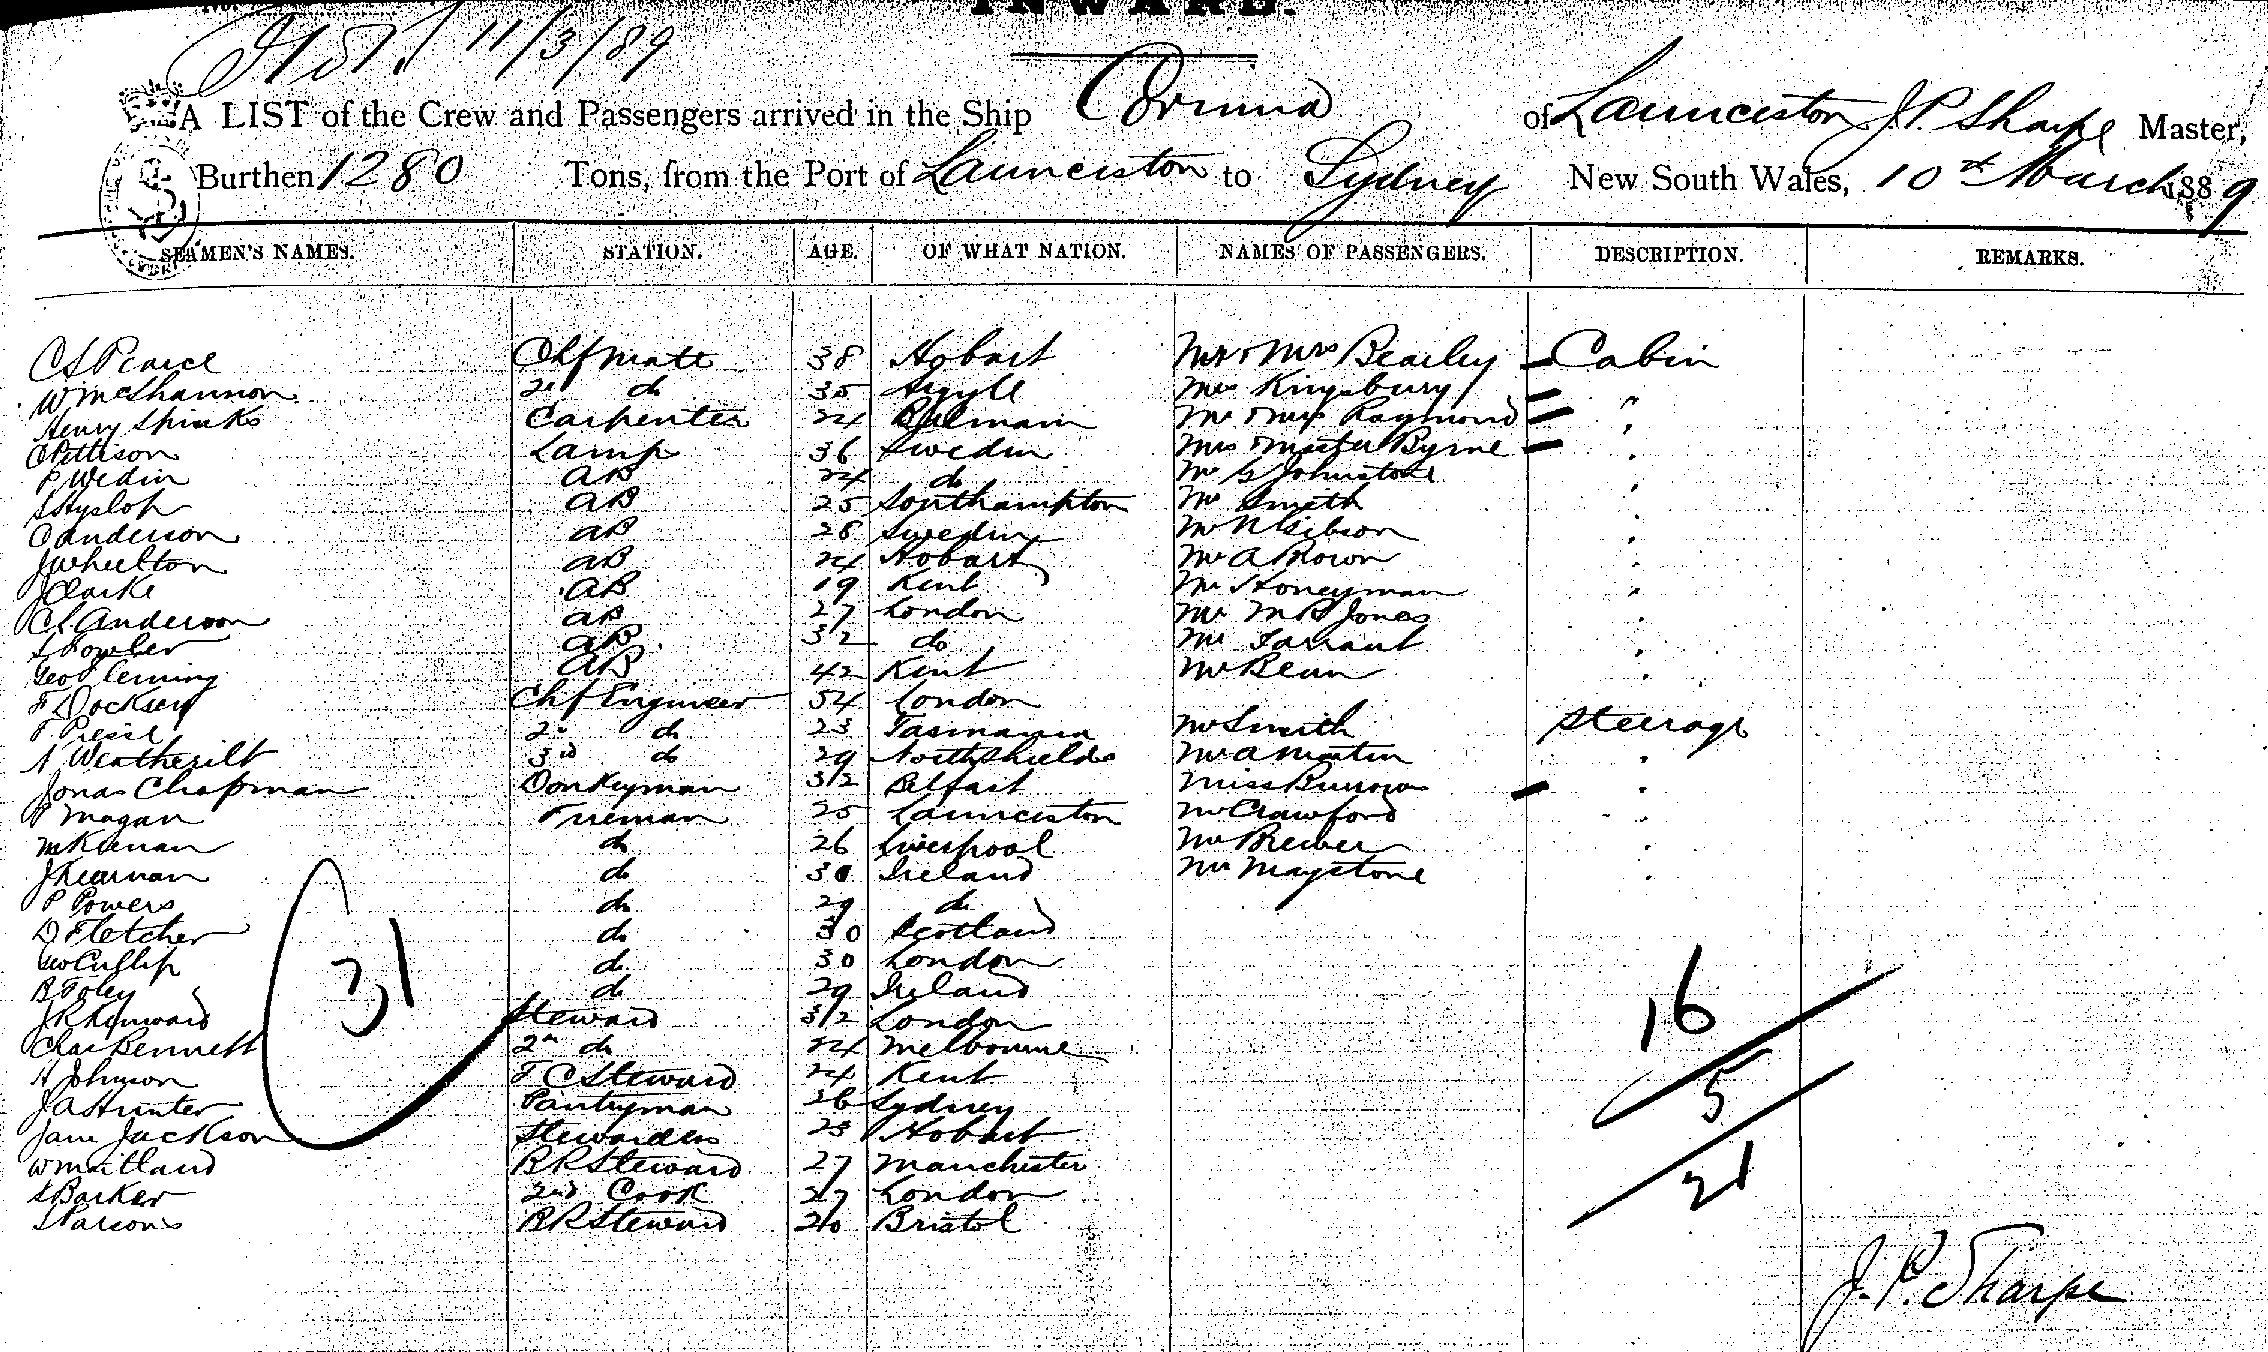 INWARD.
11/3/89
A LIST of the Crew and Passengers arrived in the Ship Corinna of Launceston J.P. Sharpe Master,
Burthen 1280 Tons, from the Port of Launceston to Sydney New South Wales, 10th March 1889
SEAMEN'S NAMES. STATION. AGE. OF WHAT NATION. NAMES OF PASSENGERS. DESCRIPTION. REMARKS.
C S Pearce Chf Mate 38 Hobart Mr & Mrs Bearley Cabin
W McShannon 2nd do 35 Argyll Mrs Kingsbury "
Henry Spinks Carpenter 24 Balmain Mr & Mrs Raymond "
C Pettison Lamp 36 Sweden Mrs & Master Byrne "
P Wedin AB 24 do Mr G Johnstone "
S Hyslop AB 25 Southampton Mr Smith "
C Anderson AB 28 Sweden Mr N Gibson "
J Wheelton AB 24 Hobart Mr A Brown "
J Clarke AB 19 Kent Mr Honeyman "
C L Anderson AB 27 London Mr M B Jones "
S Fowler AB 32 do Mr Tarrant "
Geo Fleming AB 42 Kent Mr Bean "
F Docksey Chf Engineer 54 London
T 2nd do 23 Tasmania Mr Smith Steerage
N Weatherilt 3rd do 29 North Shields Mr A Martin "
Jonas Chapman Donkeyman 32 Belfast Miss Burrows "
P Magan Fireman 25 Launceston Mr Crawford "
M Keenan do 26 Liverpool Mr Brewer "
J Kearnan do 30 Ireland Mr Maystone "
P Powers do 29 do
D Fletcher do 30 Scotland
Geo Cullip do 30 London
B Foley do 29 Ireland
J R Heyward Steward 32 London
Chas Bennett 2nd do 24 Melbourne
A Johnson F C Steward 24 Kent
J A Hunter Pantryman 26 Sydney
Jane Jackson Stewardess 23 Hobart
W Maitland B R Steward 27 Manchester
S Barker 2nd Cook 27 London
S Parsons B R Steward 20 Bristol
31
16
5
21
J. P. Sharpe